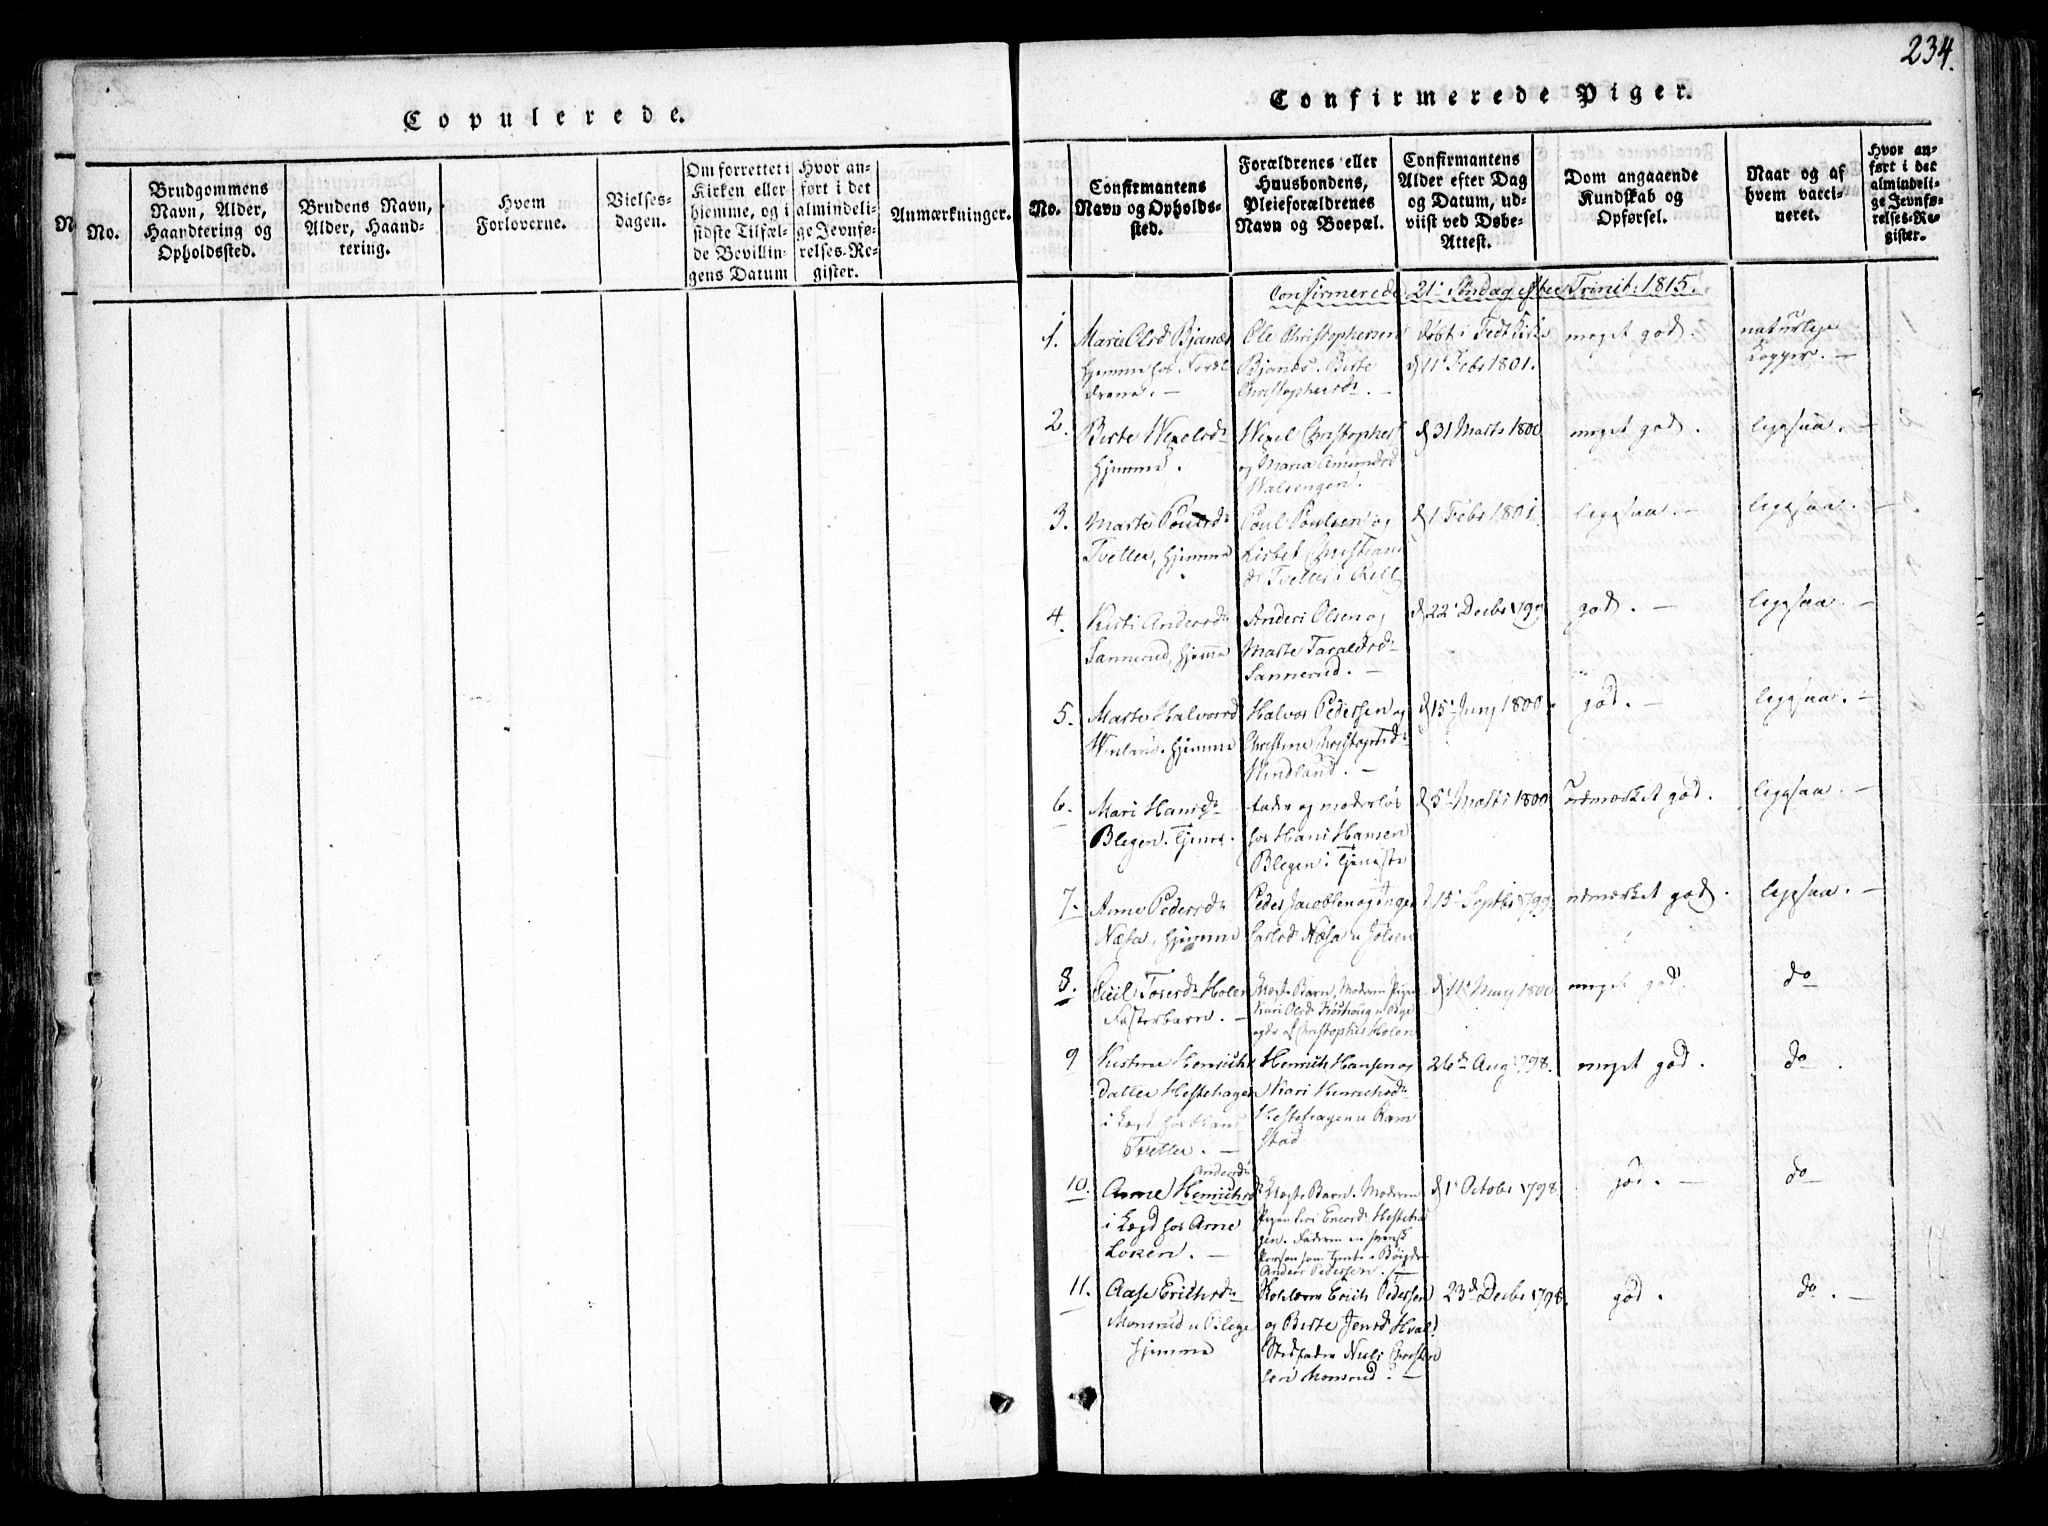 234.
Copulerede.
No.
Brudgommens
Navn, Alder,
Haandtering og
Opholdssted.
Brudens Navn,
Alder, Haand-
tering.
Hvem
Forloverne.
Vielses-
dagen.
Om forrettet i
Kirken eller
hiemme, og i
sidste Tilfæl-
de Bevillin-
gens Datum
Hvor an-
ført i det
almindeli-
ge Jevnfø-
relses-Re-
gister.
Anmærkninger.
Confirmerede Piger.
No.
Confirmantens
Navn og Opholds-
sted.
Forældrenes eller
Huusbondens,
Pleieforældrenes
Navn og Boepæl.
Confirmantens
Alder efter Dag
og Datum, ud-
viist ved Døbe-
Attest.
Dom angaaende
Kundskab og
Opførsel.
Naar og af
hvem vacci-
neret.
Hvor an-
ført i det
almindeli-
ge Jevnfø-
relses-Re-
gister.
Confirmerede 21' Söndag efter Trinit: 1815.
1. Maria Olsd Bjanæs
hjemme hos Foræl
drene. —
Ole Christophersen
Bjanes. Berte
Christophersd. —
døbt i Fedt Kirke
d 11' Febr 1801.
meget god.
naturlige
Kopper. —
2. Berte Wexelsd
hjemme.
Wexel Christophers
og Maria Amundsd
Walsengen. —
d 31 Marts 1800
meget god.
ligesaa. —
3. Marte Poulsd
Tveter, hjemme
Poul Poulsen og
Lisbet Christians
d Tveter i
d 1 Febr 1801.
ligesaa. —
ligesaa. —
4. Kirsti Andersd
Sannerud, hjemme
Anders Olsen og
Marte Taraldsd
Sannerud. —
d 22' Decbr 1799
god. —
ligesaa. —
5. Marte Halvorsd
Winland. hjemme
Halvor Pedersen og
Christine Christophsd
Windland. —
d 15' Juny 1800
god. —
ligesaa. —
6. Mari Hansd
Blegen. tjener.
fader og moderløs
hos Hans Hansen
Blegen i tjeneste
d 5' Marts 1800
udmærket god.
ligesaa. —
7. Anne Pedersd
Næsa, hjemme
Peder Jacobsen og Inger
Carlsd Næsa u Jølsen
d 15' Septbr 1799
udmærket god.
ligesaa. —
8. Holen
Fosterbarn. —
Uægte Barn. Moderen Pigen
Kari Olsd
af Christopher Holen
d 11' May 1800
meget god.
do
9 Kirstine Henrichs
datter Hestehagen
i Lægd hos Hans
Tveter. —
Henrich Hansen og
Kari Henrichsd
Hestehagen u Ram
stad
26d Aug 1798.
meget god.
do.
10. Anne Henrichsd
Andersd
i Lægd hos Arne
Loken. —
Uægte Barn. Moderen
Pigen Siri Hesteha
gen. Faderen en svensk
Person som tjente i Bøigden
Anders Pedersen. —
d 1' Octobr 1798
god. —
do
11. Aase Erichsd
Monsrud u Blege
hjemme
Erich Pedersen
og Berte Jensd Hval.
Stedfader Niels Christen
sen Monsrud. —
23d Decbr 1798.
god.
do. —